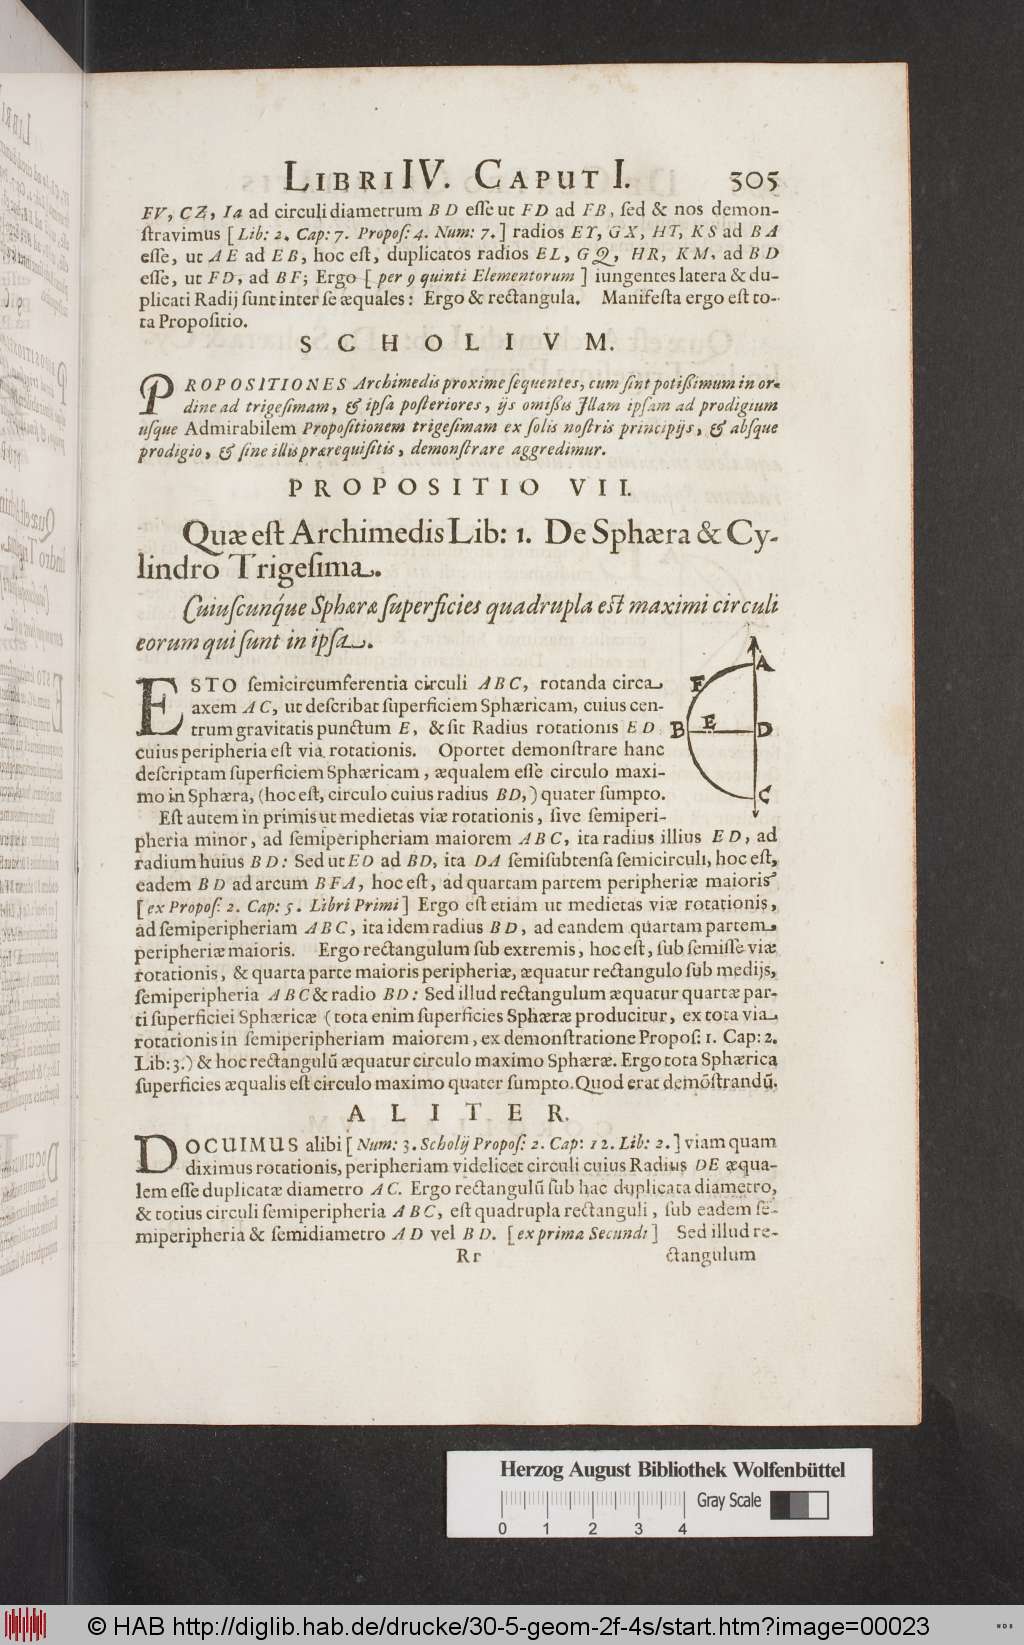 LIBRI IV. CAPUT I. 305
FV, CZ, Ia ad circuli diametrum BD esse ut FD ad FB, sed & nos demon-
stravimus [Lib: 2. Cap: 7. Propos: 4. Num: 7.] radios EY, GX, HT, KS ad BA
esse, ut AE ad EB, hoc est, duplicatos radios EL, GQ, HR, KM, ad BD
esse, ut FD, ad BF; Ergo [per 9 quinti Elementorum] iungentes latera & du-
plicati Radij sunt inter se æquales: Ergo & rectangula. Manifesta ergo est to-
ta Propositio.
SCHOLIVM.
PROPOSITIONES Archimedis proxime sequentes, cum sint potißimum in or-
dine ad trigesimam, & ipsa posteriores, ijs omißis Illam ipsam ad prodigium
usque Admirabilem Propositionem trigesimam ex solis nostris principijs, & absque
prodigio, & sine illis prærequisitis, demonstrare aggredimur.
PROPOSITIO VII.
Quæ est Archimedis Lib: 1. De Sphæra & Cy-
lindro Trigesima.
Cuiuscunque Sphæræ superficies quadrupla est maximi circuli
eorum qui sunt in ipsa.
ESTO semicircumferentia circuli ABC, rotanda circa
axem AC, ut describat superficiem Sphæricam, cuius cen-
trum gravitatis punctum E, & sit Radius rotationis ED
cuius peripheria est via rotationis. Oportet demonstrare hanc
descriptam superficiem Sphæricam, æqualem esse circulo maxi-
mo in Sphæra, (hoc est, circulo cuius radius BD,) quater sumpto.
A
F
B E D
C
Est autem in primis ut medietas viæ rotationis, sive semiperi-
pheria minor, ad semiperipheriam maiorem ABC, ita radius illius ED, ad
radium huius BD: Sed ut ED ad BD, ita DA semisubtensa semicirculi, hoc est,
eadem BD ad arcum BFA, hoc est, ad quartam partem peripheriæ maioris
[ex Propos: 2. Cap: 5. Libri Primi] Ergo est etiam ut medietas viæ rotationis,
ad semiperipheriam ABC, ita idem radius BD, ad eandem quartam partem
peripheriæ maioris. Ergo rectangulum sub extremis, hoc est, sub semisse viæ
rotationis, & quarta parte maioris peripheriæ, æquatur rectangulo sub medijs,
semiperipheria ABC & radio BD: Sed illud rectangulum æquatur quartæ par-
ti superficiei Sphæricæ (tota enim superficies Sphæræ producitur, ex tota via
rotationis in semiperipheriam maiorem, ex demonstratione Propos: 1. Cap: 2.
Lib: 3.) & hoc rectangulũ æquatur circulo maximo Sphæræ. Ergo tota Sphærica
superficies æqualis est circulo maximo quater sumpto. Quod erat demõstrandũ.
ALITER.
DOCUIMUS alibi [Num: 3. Scholij Propos: 2. Cap: 12. Lib: 2.] viam quam
diximus rotationis, peripheriam videlicet circuli cuius Radius DE æqua-
lem esse duplicatæ diametro AC. Ergo rectangulũ sub hac duplicata diametro,
& totius circuli semiperipheria ABC, est quadrupla rectanguli, sub eadem se-
miperipheria & semidiametro AD vel BD. [ex prima Secundi] Sed illud re-
Rr ctangulum
Herzog August Bibliothek Wolfenbüttel
Gray Scale
0 1 2 3 4
© HAB http://diglib.hab.de/drucke/30-5-geom-2f-4s/start.htm?image=00023